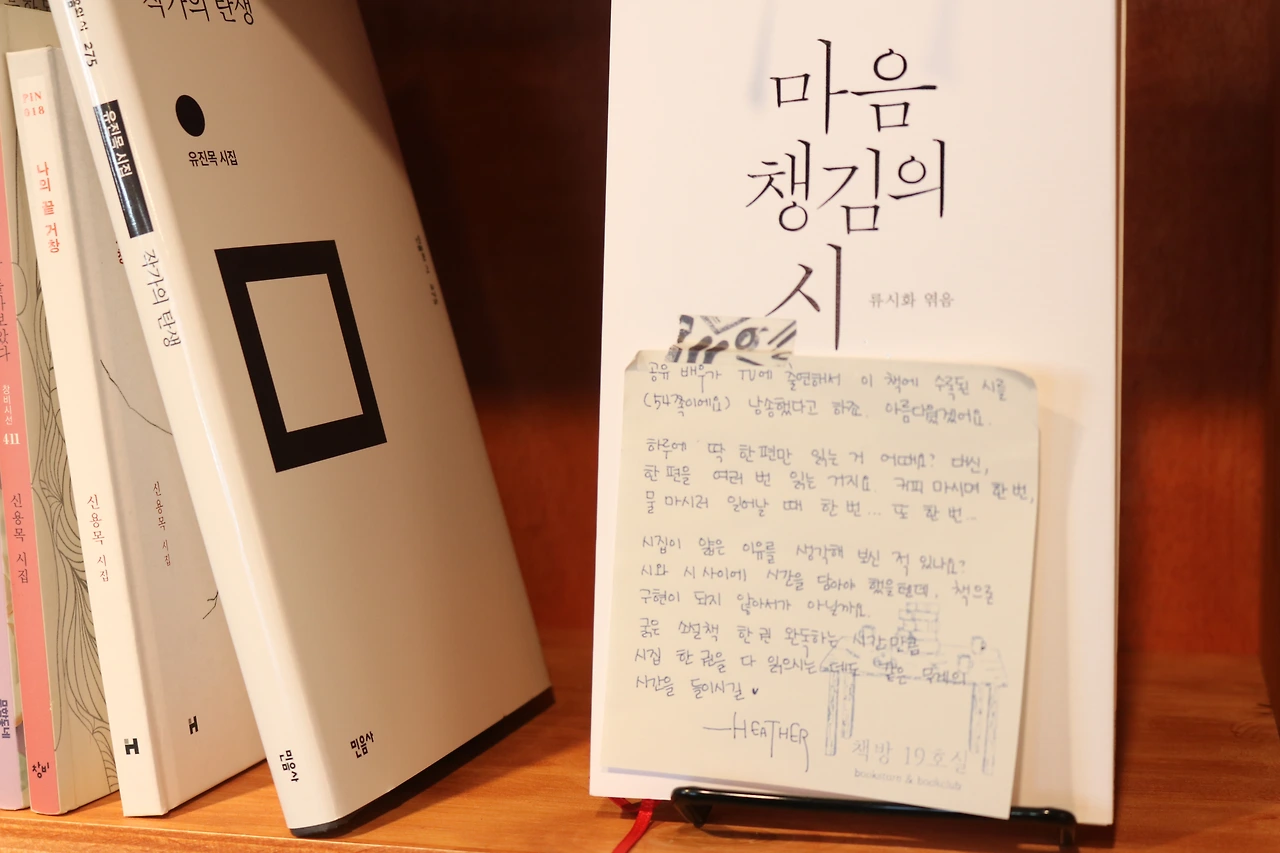 PIN
018
나의 끝 거창
신용목 시집
신용목 시집
창비시선
411
신용목 시집
창비
문학동네
275
유진목 시집
작가의 탄생
민음사
작가의 탄생
유진목 시집
민음사
마음
챙김의
시
류시화 엮음
공유 배우가 TV에 출연해서 이 책에 수록된 시를
(54쪽이에요) 낭송했다고 하죠. 아름다웠겠어요.
하루에 딱 한 편만 읽는 거 어때요? 대신,
한 편을 여러 번 읽는 거지요. 커피 마시며 한 번,
물 마시러 일어날 때 한 번... 또 한 번...
시집이 얇은 이유를 생각해 보신 적 있나요?
시와 시 사이에 시간을 담아야 했을텐데, 책으론
구현이 되지 않아서가 아닐까요.
굵은 소설책 한 권 완독하는 시간만큼
시집 한 권을 다 읽으시는 데도 같은 무게의
시간을 들이시길 ♥
—HEATHER
책방 19호실
bookstore & bookclub